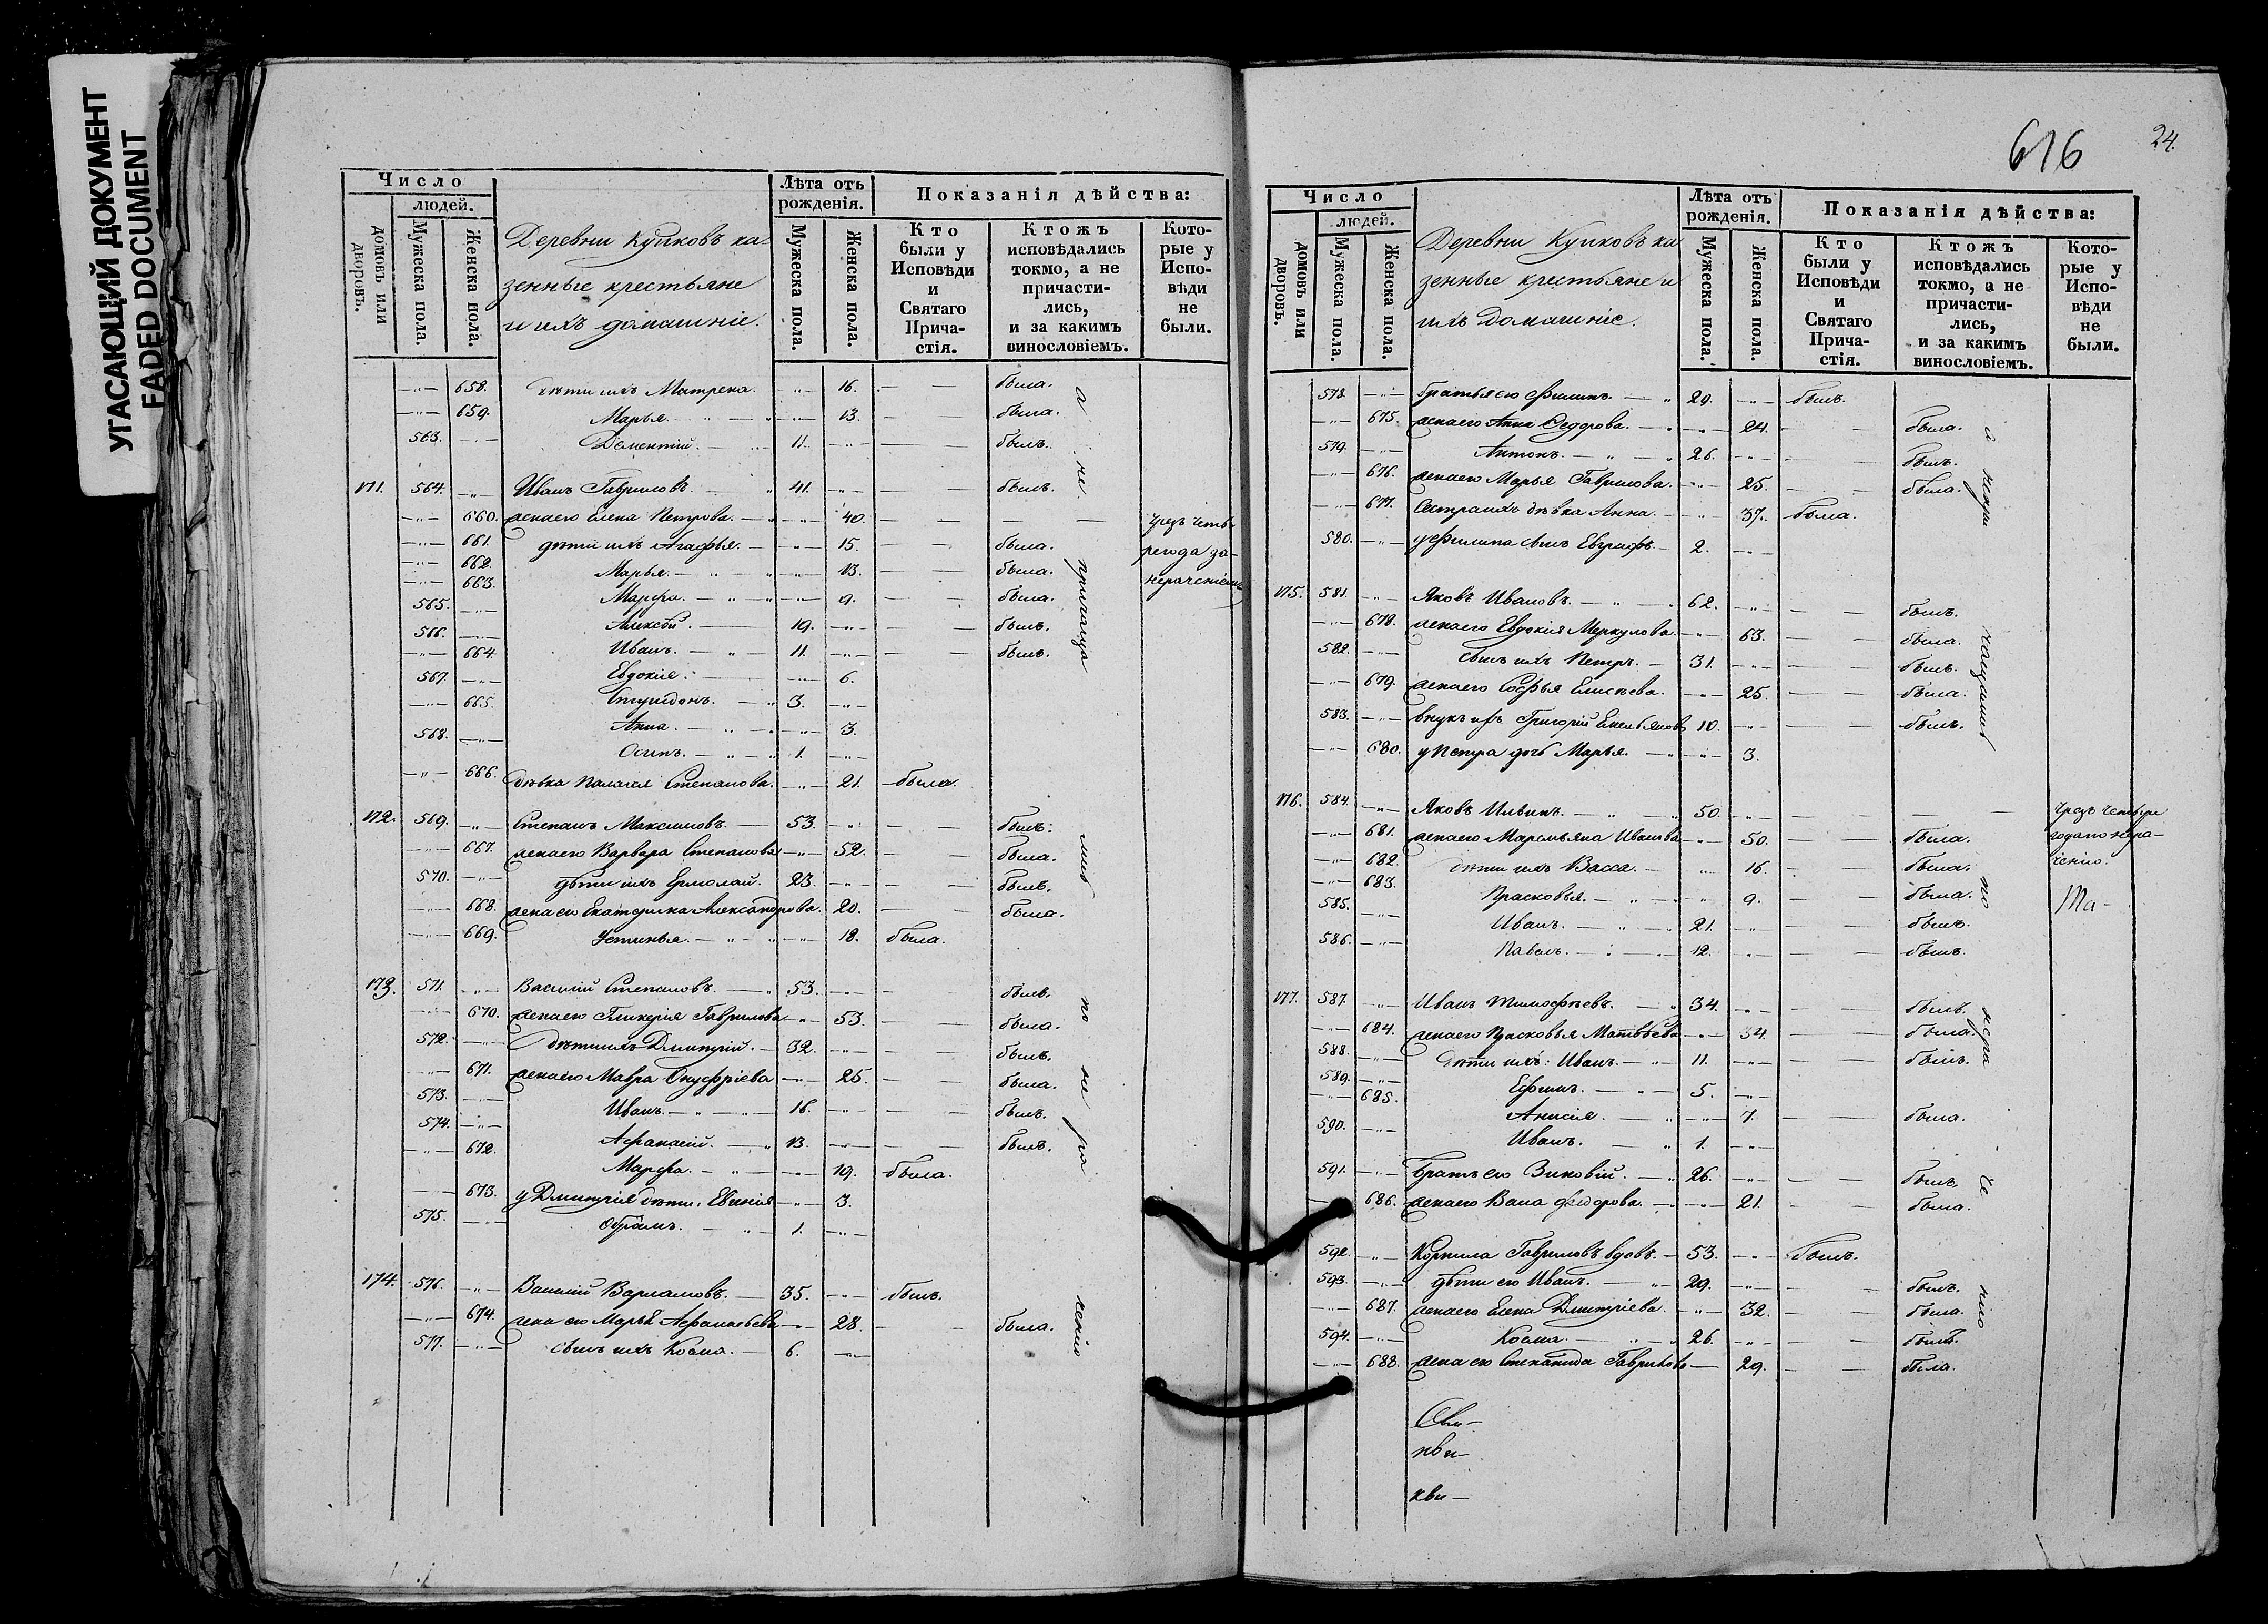 УГАСАЮЩИЙ ДОКУМЕНТ
FADED DOCUMENT
Число
людей.
домовъ или дворовъ.
Мужеска пола.
Женска пола.
Деревни Купковъ ка-
зенные крестьяне
и ихъ домашніе.
Лѣта отъ рожденія.
Мужеска пола.
Женска пола.
Показанія дѣйства:
Кто были у Исповѣди и Святаго Прича-стія.
Ктожъ исповѣдались токмо, а не причасти-лись, и за какимъ винословіемъ.
Кото-рые у Испо-вѣди не были.
658. дѣти ихъ Матрена. 16. была.
659. Марья. 13. была.
563. Дементій. 11. былъ.
171. 564. Иванъ Гавриловъ. 41. былъ.
660. жена его Елена Петрова. 40. чрезъ четы-
661. дѣти ихъ Агафья. 15. была. ре года за
662. Марья. 13. была. нераченіемъ
663. Марфа. 9. была.
565. Алексѣй. 19. былъ.
566. Иванъ. 11. былъ.
664. Евдокія. 6.
567. Спиридонъ. 3.
665. Анна. 3.
568. Осипъ. 1.
666. дѣвка Палагея Степанова. 21. была.
172. 569. Степанъ Максимовъ. 53. былъ.
667. жена его Варвара Степанова 52. была.
570. дѣти ихъ Ермолай. 23. былъ.
668. жена его Екатерина Александрова. 20. была.
669. Устинья. 18. была.
173. 571. Василій Степановъ. 53. былъ.
670. жена его Гликерія Гаврилова 53. была.
572. дѣти ихъ Дмитрій. 32. былъ.
671. жена его Мавра Онуфріева 25. была.
573. Иванъ. 16. былъ.
574. Афанасій. 13. былъ.
672. Марфа. 19. была.
673. у Дмитрія дѣти: Евгенія 3.
575. Обрамъ. 1.
174. 576. Василій Варламовъ. 35. былъ.
674. жена его Марья Афанасьева 28. была.
577. сынъ ихъ Косма. 6.
а не причаща лись по не ра ченію
616
24.
Число
людей.
домовъ или дворовъ.
Мужеска пола.
Женска пола.
Деревни Купковъ ка
зенные крестьяне и
ихъ домашніе.
Лѣта отъ рожденія.
Мужеска пола.
Женска пола.
Показанія дѣйства:
Кто были у Исповѣди и Святаго Прича-стія.
Ктожъ исповѣдались токмо, а не причасти-лись, и за какимъ винословіемъ.
Кото-рые у Испо-вѣди не были.
578. братья его Филипъ. 29. былъ.
675. жена его Анна Федорова. 24. была.
579. Антонъ. 26. былъ.
676. жена его Марья Гаврилова. 25. была.
677. Сестра ихъ дѣвка Анна. 37. была.
580. у Филипа сынъ Евграфъ. 2.
175. 581. Яковъ Ивановъ. 62. былъ.
678. жена его Евдокія Меркулова 63. была.
582. сынъ ихъ Петръ. 31. былъ.
679. жена его Софья Елисѣева. 25. была.
583. внукъ ихъ Григорій Емельяновъ 10. былъ.
680. у Петра дочь Марья. 3.
176. 584. Яковъ Ильинъ. 50. чрезъ четыре
681. жена его Маремьяна Иванова 50. была. года по нера-
682. дѣти ихъ Васса. 16. была. ченію.
683. Прасковья. 9. была.
585. Иванъ. 21. былъ.
586. Павелъ. 12. былъ.
177. 587. Иванъ Тимофѣевъ. 34. былъ.
684. жена его Прасковья Матвѣева 34. была.
588. дѣти ихъ: Иванъ. 11. былъ.
589. Ефимъ. 5.
685. Анисія. 7. была.
590. Иванъ. 1.
591. братъ его Зиновій. 26. былъ.
686. жена его Васса Федорова. 21. была.
592. Корнила Гавриловъ вдовъ. 53. былъ.
593. дѣти его Иванъ. 29. былъ.
687. жена его Елена Дмитріева. 32. была.
594. Косма. 26. былъ.
688. жена его Степанида Гаврилова 29. была.
по нера че нію
Та-